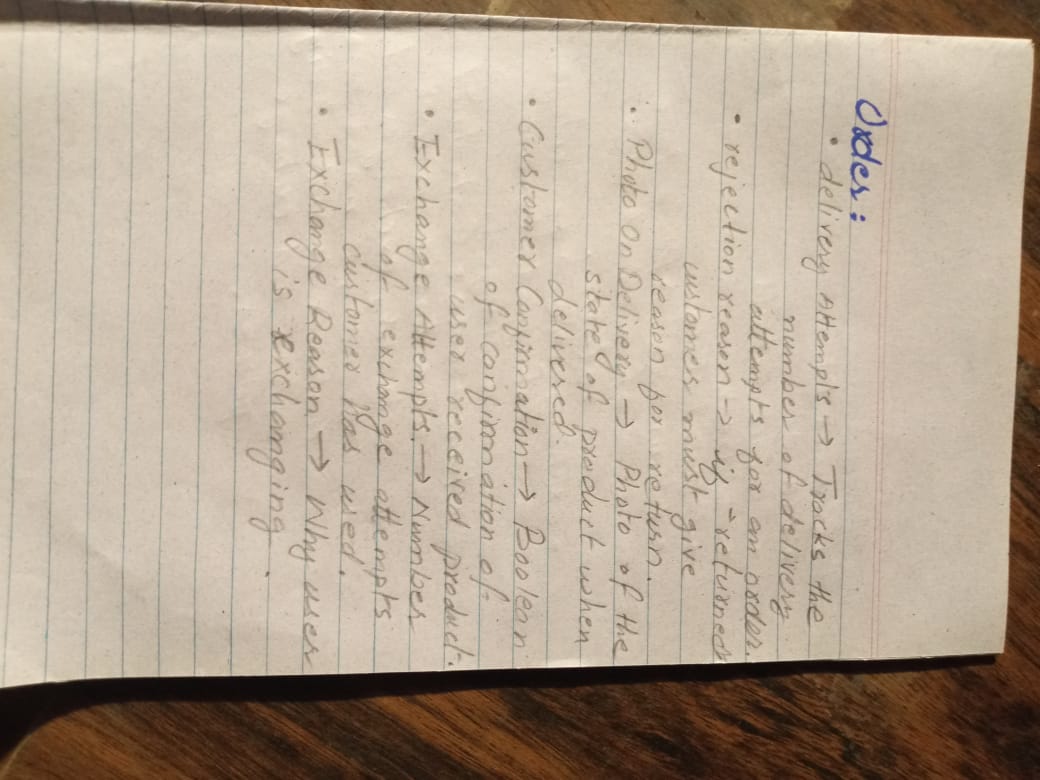 Order:
• delivery Attempts → Tracks the
number of delivery
attempts for an order.
• rejection reason → if "returned"
customer must give
reason for return.
• Photo On Delivery → Photo of the
state of product when
delivered.
• Customer Confirmation → Boolean
of confirmation of
user received product.
• Exchange Attempts. → Number
of exchange attempts
customer has used.
• Exchange Reason → Why user
is exchanging.